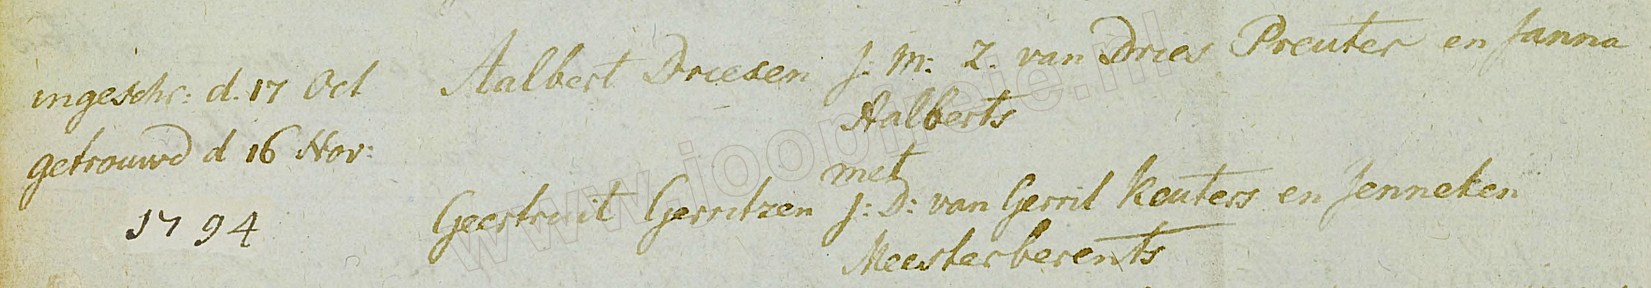 ingeschr: d. 17 Oct
getrouwd d 16 Nov:
1794
Aalbert Driesen J: M: Z. van Dries Preuter en Janna
Aalberts
met
Geertruit Gerritzen J: D: van Gerrit Keuters en Jenneken
Meesterberents